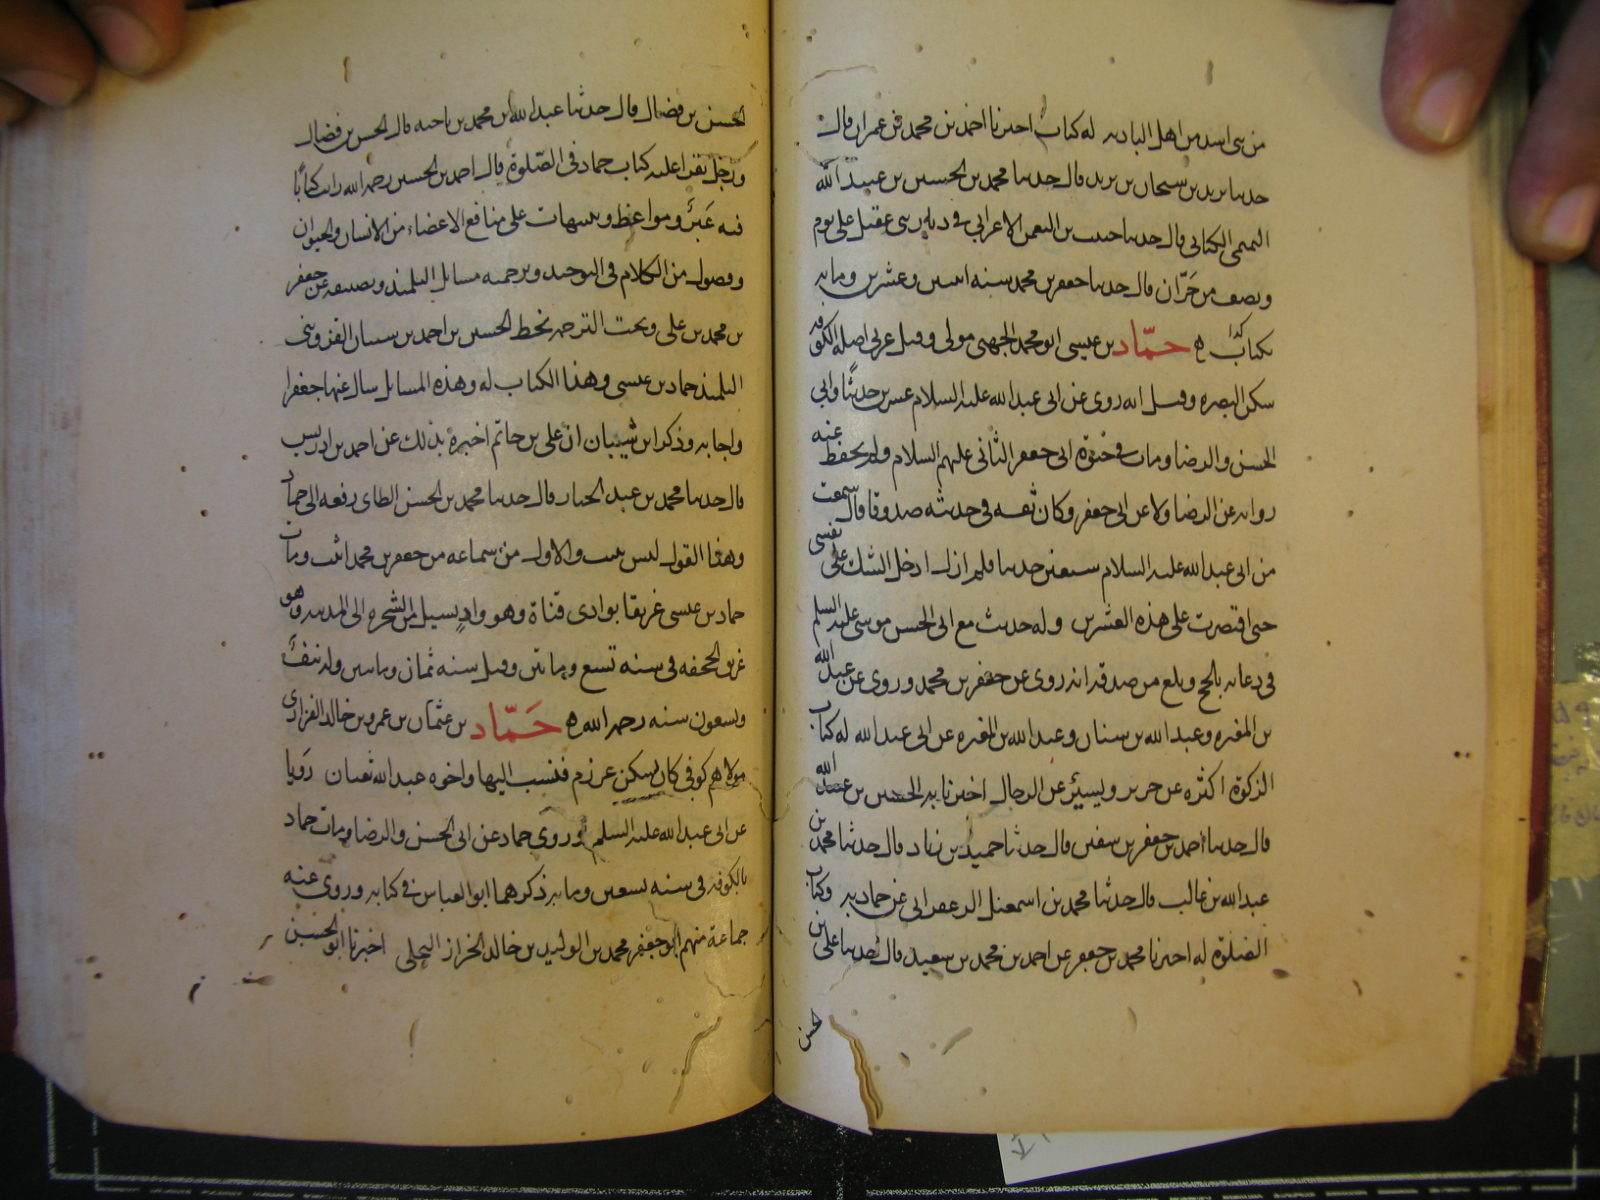 من بنى اسد من اهل البادىه له كتاب اخبرنا احمد بن محمد بن عمران قال
حدثنا يزيد بن سنجان بن يزيد قال حدثنا محمد بن الحسين بن عبد الله
التميمى الكتانى قال حدثنا حبيب بن النعمن الاعرابى فى ديار بنى عقيل على يوم
ونصف من حَرّان قال حدثنا جعفر بن محمد سنه اثنين وعشرين ومايه
بكتاب كذا ه حمّاد بن عيسى ابو محمد الجهنى مولى وقيل عربى اصله الكوفه
سكن البصره وقيل انه روى عن ابى عبد الله عليه السلام عشرين حديثًا وابى
الحسن والرضا ومات فى حيوة ابى جعفر الثانى عليهم السلام ولم يحفظ عنه
روايه عن الرضا ولا عن ابى جعفر وكان ثقه فى حديثه صدوقا قال سمعت
من ابى عبد الله عليه السلام سبعين حديثا فلم ازل ادخل الشك على نفسى
حتى اقتصرت على هذه العشرين وله حديث مع ابى الحسن موسى عليه السلم
فى دعائه بالحج وبلغ من صدقه انه روى عن جعفر بن محمد وروى عن عبد الله
بن المغيره وعبد الله بن سنان وعبد الله بن المغيره عن ابى عبد الله له كتاب
الزكوة اكثره عن حريز ويسير عن الرجال اخبرنا به الحسين بن عبيد الله
قال حدثنا احمد بن جعفر بن سفين قال حدثنا حميد بن زياد قال حدثنا محمد بن
عبد الله بن غالب قال حدثنا محمد بن اسمعيل الزعفرانى عن حماد به وكتاب
الصلوة له اخبرنا محمد بن جعفر عن احمد بن محمد بن سعيد قال حدثنا على بن
الحسن
الحسن بن فضال قال حدثنا عبد الله بن محمد بن ناجيه قال الحسن بن فضال
ورجل يقرا عليه كتاب حماد فى الصّلوة قال احمد بن الحسين رحمه الله رايت كتابًا
فيه عَبَرٌ ومواعظ وتنبيهات على منافع الاعضاء من الانسان والحيوان
وفصول من الكلام فى التوحيد وترجمه مسايل التلميذ وتصنيفه عن جعفر
بن محمد بن على وتحت الترجمه بخط الحسين بن احمد بن شيبان القزوينى
التلميذ حماد بن عيسى وهذا الكتاب له وهذه المسايل سال عنها جعفرا
واجابه وذكر ابن شيبان ان على بن حاتم اخبره بذلك عن احمد بن ادريس
قال حدثنا محمد بن عبد الجبار قال حدثنا محمد بن الحسن الطاى رفعه الى حماد
وهذا القول ليس بثبت والاول من سماعه من جعفر بن محمد اثبت ومات
حماد بن عيسى غريقا بوادى قناة وهو وادٍ يسيل من الشجره الى المدينه وهو
غريق الجحفه فى سنه تسع ومائتن وقيل سنه ثمان ومائتين وله نيفٌ
وتسعون سنه رحمه الله ه حَمّاد بن عثمان بن عمرو بن خالد الفزارى
مولاهم كوفى كان يسكن عرزم فنسب اليها واخوه عبد الله ثقتان رَوَيا
عن ابى عبد الله عليه السلم وروى حماد عن ابى الحسن والرضا ومات حماد
بالكوفه فى سنه تسعين ومايه ذكرهما ابو العباس فى كتابه وروى عنه
جماعة منهم ابو جعفر محمد بن الوليد بن خالد الخزاز البجلى اخبرنا ابو الحسين